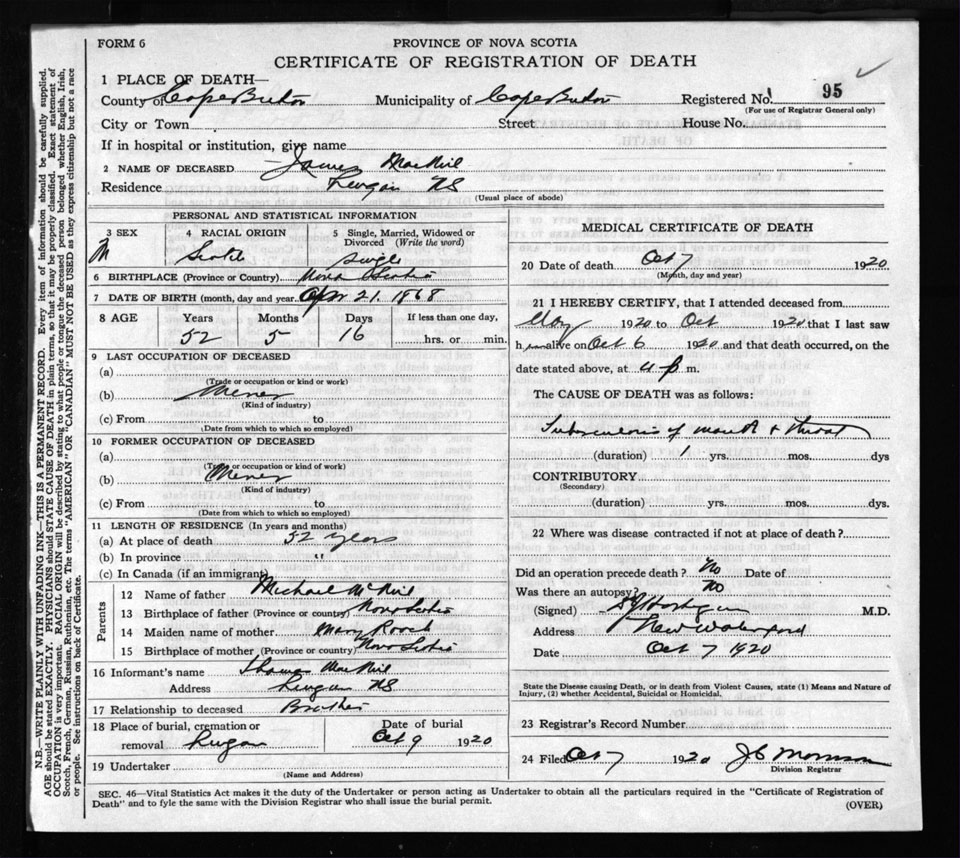 FORM 6
PROVINCE OF NOVA SCOTIA
CERTIFICATE OF REGISTRATION OF DEATH
1 PLACE OF DEATH—
County of Cape Breton Municipality of Cape Breton Registered No. 95
(For use of Registrar General only)
City or Town Street House No.
If in hospital or institution, give name
2 NAME OF DECEASED James MacNeil
Residence NS
(Usual place of abode)
PERSONAL AND STATISTICAL INFORMATION
3 SEX 4 RACIAL ORIGIN 5 Single, Married, Widowed or Divorced (Write the word)
M Scotch Single
6 BIRTHPLACE (Province or Country) Nova Scotia
7 DATE OF BIRTH (month, day and year) Apr 21. 1868
8 AGE Years Months Days If less than one day,
52 5 16 hrs. or min.
9 LAST OCCUPATION OF DECEASED
(a)
(Trade or occupation or kind or work)
(b) Miner
(Kind of industry)
(c) From to
(Date from which to which so employed)
10 FORMER OCCUPATION OF DECEASED
(a)
(Trade or occupation or kind of work)
(b) Miner
(Kind of industry)
(c) From to
(Date from which to which so employed)
11 LENGTH OF RESIDENCE (In years and months)
(a) At place of death 52 years
(b) In province "
(c) In Canada (if an immigrant)
Parents
12 Name of father Michael McNeil
13 Birthplace of father (Province or country) Nova Scotia
14 Maiden name of mother Mary Roach
15 Birthplace of mother (Province or country) Nova Scotia
16 Informant's name Thomas MacNeil
Address NS
17 Relationship to deceased Brother
18 Place of burial, cremation or removal Date of burial
Oct 9 1920
19 Undertaker
(Name and Address)
MEDICAL CERTIFICATE OF DEATH
20 Date of death Oct 7 1920
(Month, day and year)
21 I HEREBY CERTIFY, that I attended deceased from
1920 to Oct 1920 that I last saw
him alive on Oct 6 1920 and that death occurred, on the
date stated above, at 4 p m.
The CAUSE OF DEATH was as follows:
Tuberculosis of mouth & throat
(duration) 1 yrs. mos. dys
CONTRIBUTORY
(Secondary)
(duration) yrs. mos. dys.
22 Where was disease contracted if not at place of death?
Did an operation precede death? No Date of
Was there an autopsy? No
(Signed) M.D.
Address New Waterford
Date Oct 7 1920
State the Disease causing Death, or in death from Violent Causes, state (1) Means and Nature of
Injury, (2) whether Accidental, Suicidal or Homicidal.
23 Registrar's Record Number
24 Filed Oct 7 1920 J C
Division Registrar
SEC. 46—Vital Statistics Act makes it the duty of the Undertaker or person acting as Undertaker to obtain all the particulars required in the "Certificate of Registration of
Death" and to fyle the same with the Division Registrar who shall issue the burial permit.
(OVER)
N.B.—WRITE PLAINLY WITH UNFADING INK—THIS IS A PERMANENT RECORD. Every item of information should be carefully supplied.
AGE should be stated EXACTLY. PHYSICIANS should STATE CAUSE OF DEATH in plain terms, so that it may be properly classified. Exact statement of
OCCUPATION is very important. RACIAL ORIGIN will be described by stating to what people or tongue the deceased person belonged whether English, Irish,
Scotch, French, German, Russian, Ruthenian, etc. The terms "AMERICAN" OR "CANADIAN" MUST NOT BE USED as they express citizenship but not a race
or people. See instructions on back of Certificate.